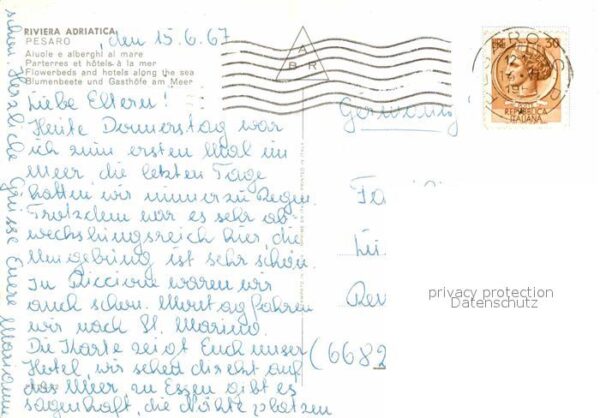 RIVIERA ADRIATICA
PESARO
Aiuole e alberghi al mare
Parterres et hôtels à la mer
Flowerbeds and hotels along the sea
Blumenbeete und Gasthöfe am Meer
den 15.6.67
Liebe Eltern!
Heute Donnerstag war
ich zum ersten Mal im
Meer die letzten Tage
hatten wir immer Regen.
Trotzdem war es sehr ab-
wechslungsreich hier, die
Umgebung ist sehr schön.
In Riccione waren wir
auch schon. Montag fahren
wir nach St. Marino.
Die Karte zeigt Euch unser
Hotel, wir sehen direkt auf
das Meer, zu Essen gibt es
sagenhaft, die Nähte platzen
schon. Herzliche Grüsse Eure
Germany
(6682
A
B R
30
REPUBBLICA
ITALIANA
privacy protection
Datenschutz